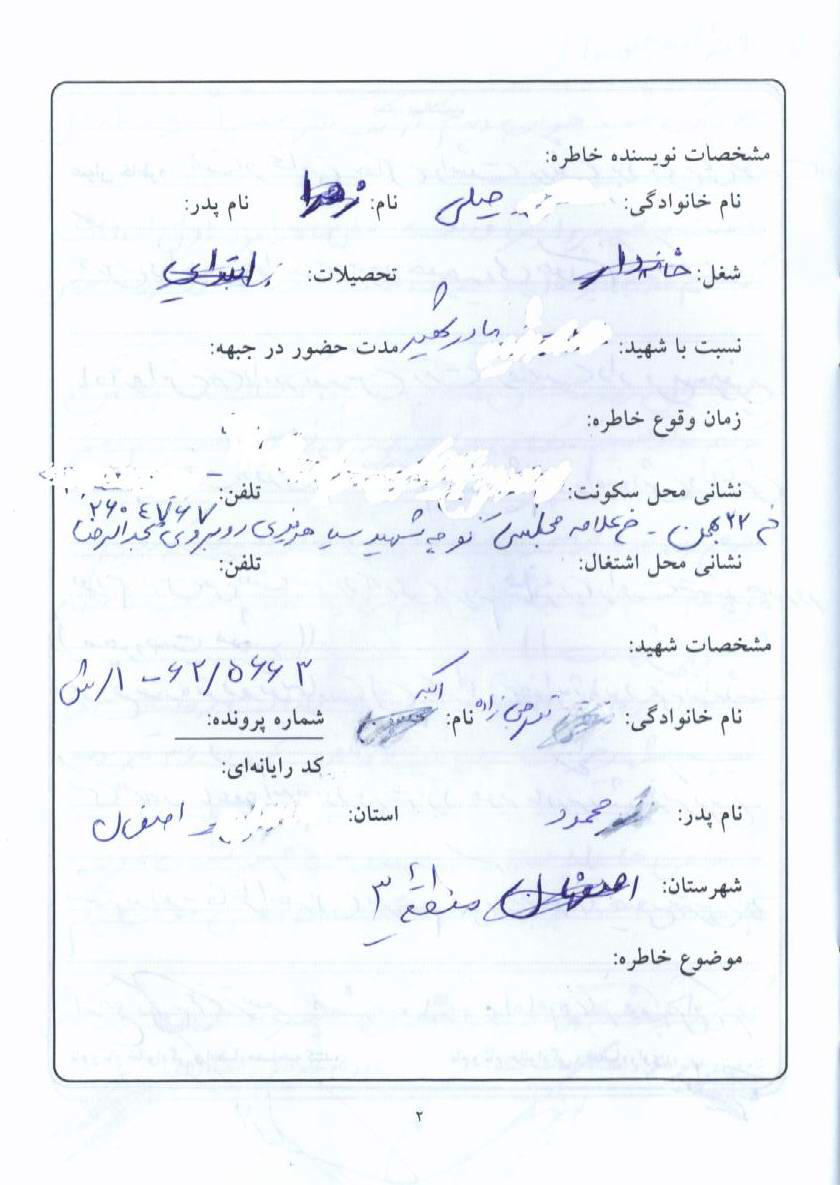 مشخصات نویسنده خاطره:
نام خانوادگی: جبلی نام: زهرا نام پدر:
شغل: خانه‌دار تحصیلات: ابتدایی
نسبت با شهید: مادر شهید مدت حضور در جبهه:
زمان وقوع خاطره:
نشانی محل سکونت: تلفن:
خ ۲۲ بهمن - خ علامه مجلسی کوچه شهید روبروی
نشانی محل اشتغال: تلفن:
مشخصات شهید:
۱/ش - ۶۲/۵۶۶۳
نام خانوادگی: نام: اکبر شماره پرونده:
کد رایانه‌ای:
نام پدر: محمود استان: اصفهان
شهرستان: اصفهان منطقه ۳
موضوع خاطره:
۲